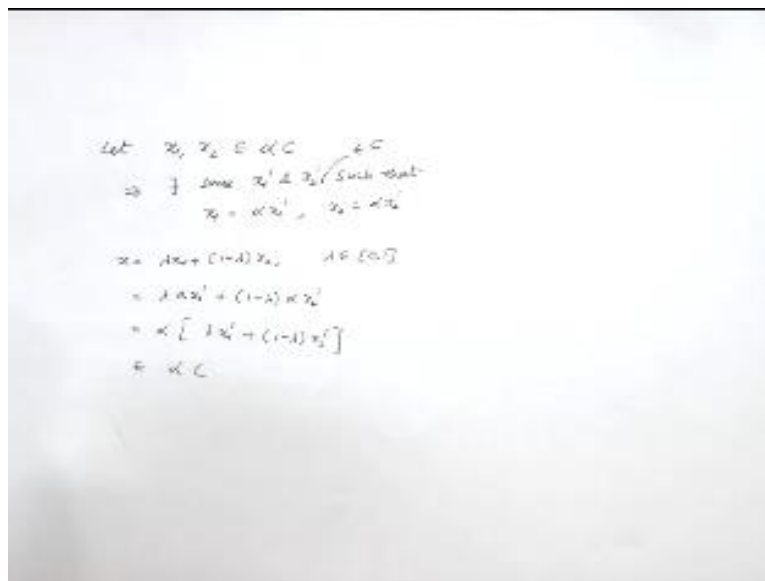 Let x₁, x₂ ∈ αC ∈ C
⇒ ∃ some x₁' & x₂' such that
x₁ = αx₁', x₂ = αx₂'
x = λx₁ + (1-λ)x₂, λ ∈ [0,1]
= λαx₁' + (1-λ)αx₂'
= α[λx₁' + (1-λ)x₂']
∈ αC